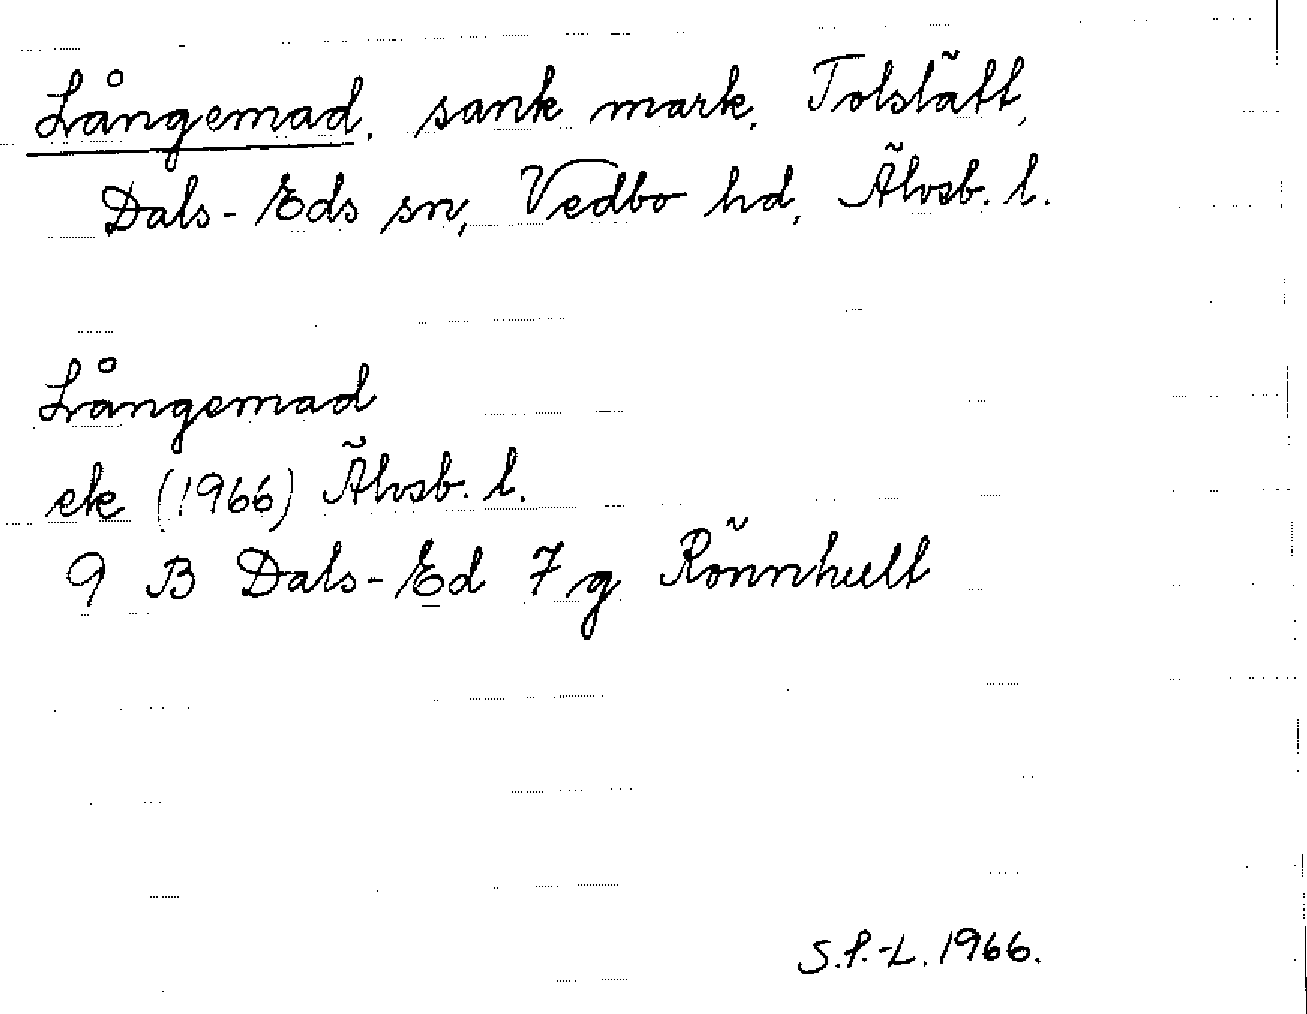 Långemad, sank mark, Tolslätt,
Dals-Eds sn, Vedbo hd, Älvsb. l.
Långemad
ek (1966) Älvsb. l.
9 B Dals-Ed 7 g Rönnhult
S.P.-L. 1966.